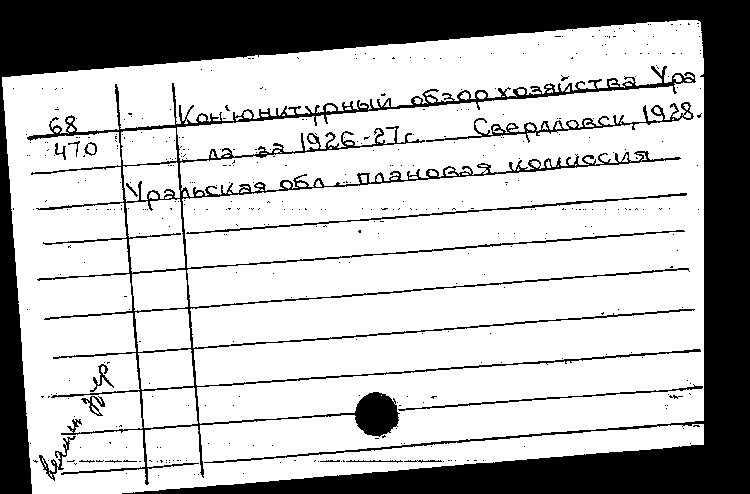 68
470
Кон'юнктурный обзор хозяйства Ура-
ла за 1926-27г. Свердловск, 1928.
Уральская обл. плановая комиссия